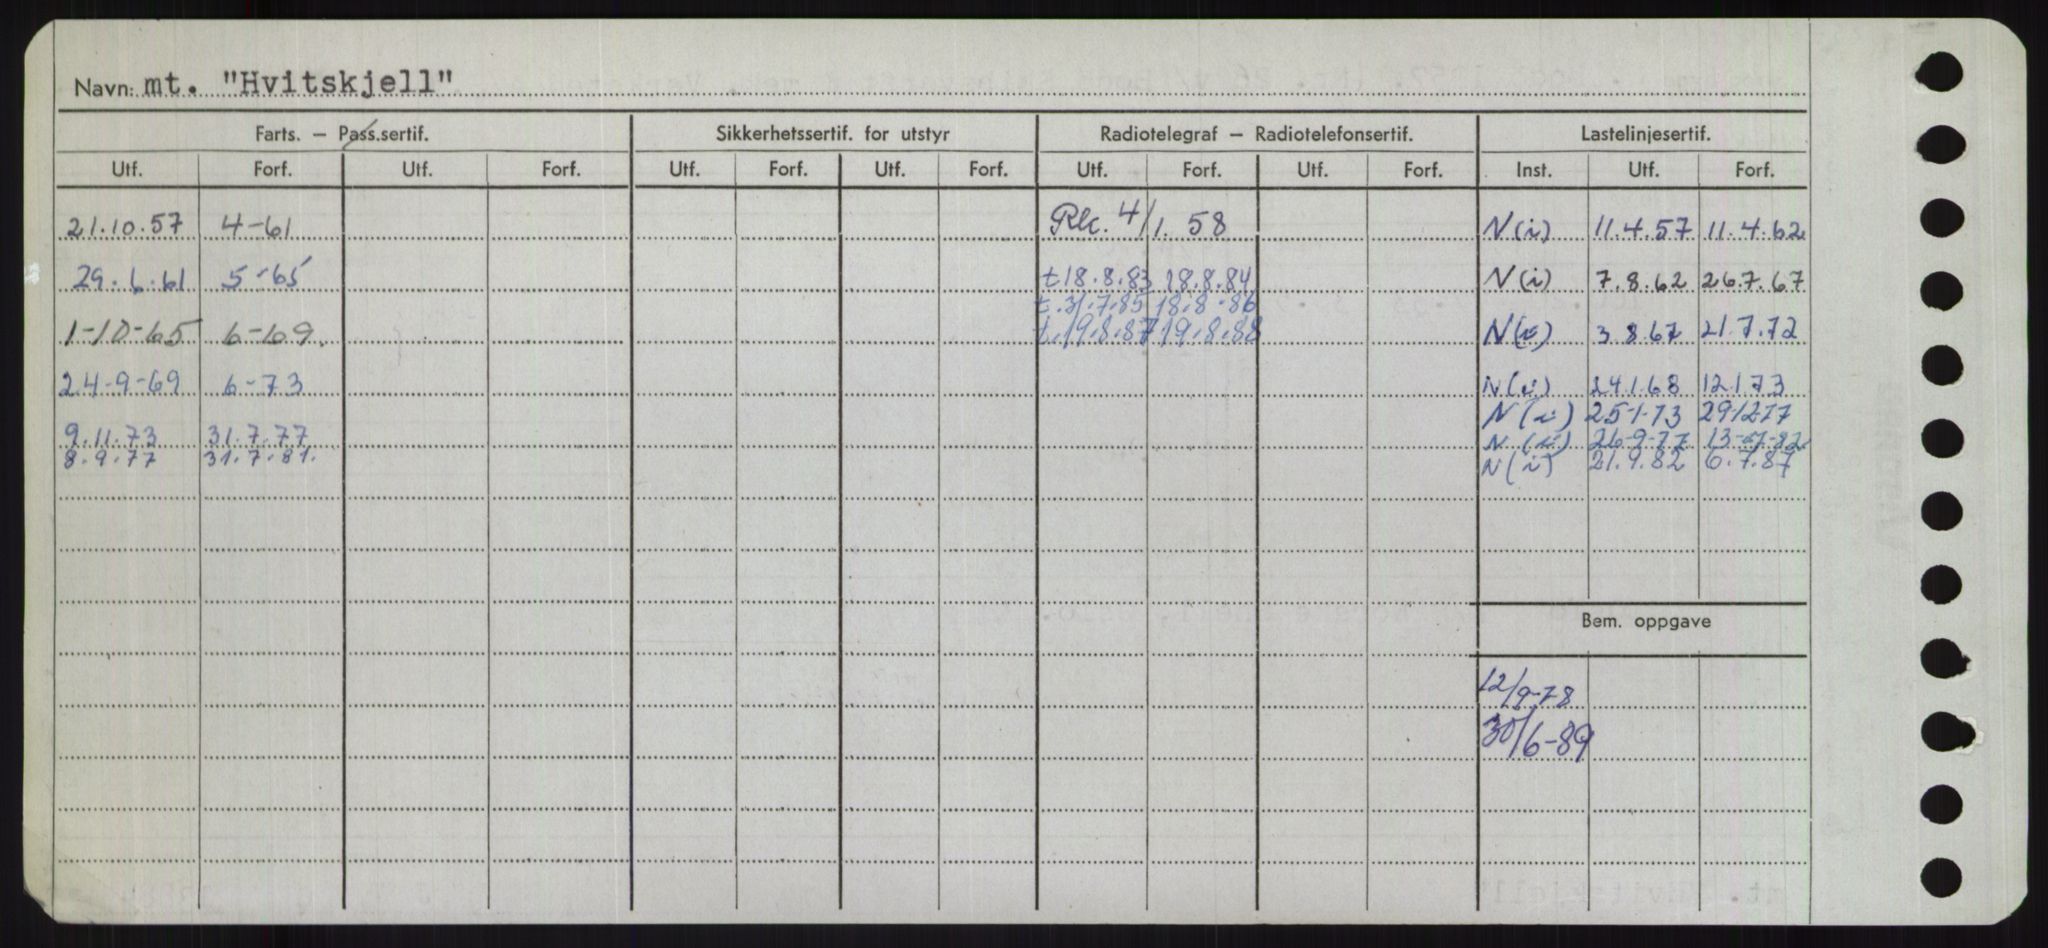 Navn: mt. "Hvitskjell"
Farts. – Pass.sertif. Sikkerhetssertif. for utstyr Radiotelegraf – Radiotelefonsertif. Lastelinjesertif.
Utf. Forf. Utf. Forf. Utf. Forf. Utf. Forf. Utf. Forf. Utf. Forf. Inst. Utf. Forf.
21.10.57 4-61 4/1. 58 N(i) 11.4.57 11.4.62
29.6.61 5-65 t.18.8.83 18.8.84 N(i) 7.8.62 26.7.67
t.31.7.85 18.8.86
1-10-65 6-69. t.19.8.87 19.8.88 N(i) 3.8.67 21.7.72
24-9-69 6-73 N(i) 24.1.68 12.1.73
N(i) 25-1-73 29-12-77
9.11.73 31.7.77 N(i) 26-9-77 13-7-82
8.9.77 31.7.81. N(i) 21.9.82 6.7.87
Bem. oppgave
12/9-78
30/6-89